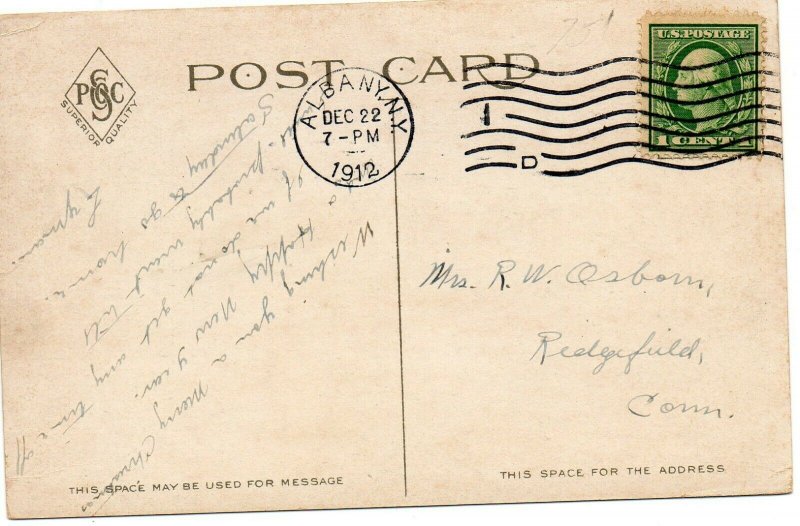 POST CARD
PSCC
SUPERIOR QUALITY
ALBANY, N.Y.
DEC 22
7-PM
1912
1
D
U.S. POSTAGE
1 CENT 1
Wishing you a Merry Christmas
a Happy New Year.
If we do not get any time
we probably wont till
Saturday to go home.
Lyman.
Mrs. R. W. Osborn,
Ridgefield,
Conn.
THIS SPACE MAY BE USED FOR MESSAGE
THIS SPACE FOR THE ADDRESS